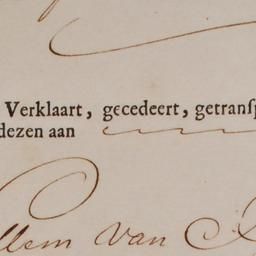 Verklaart, gecedeert, getransp
dezen aan
llem van